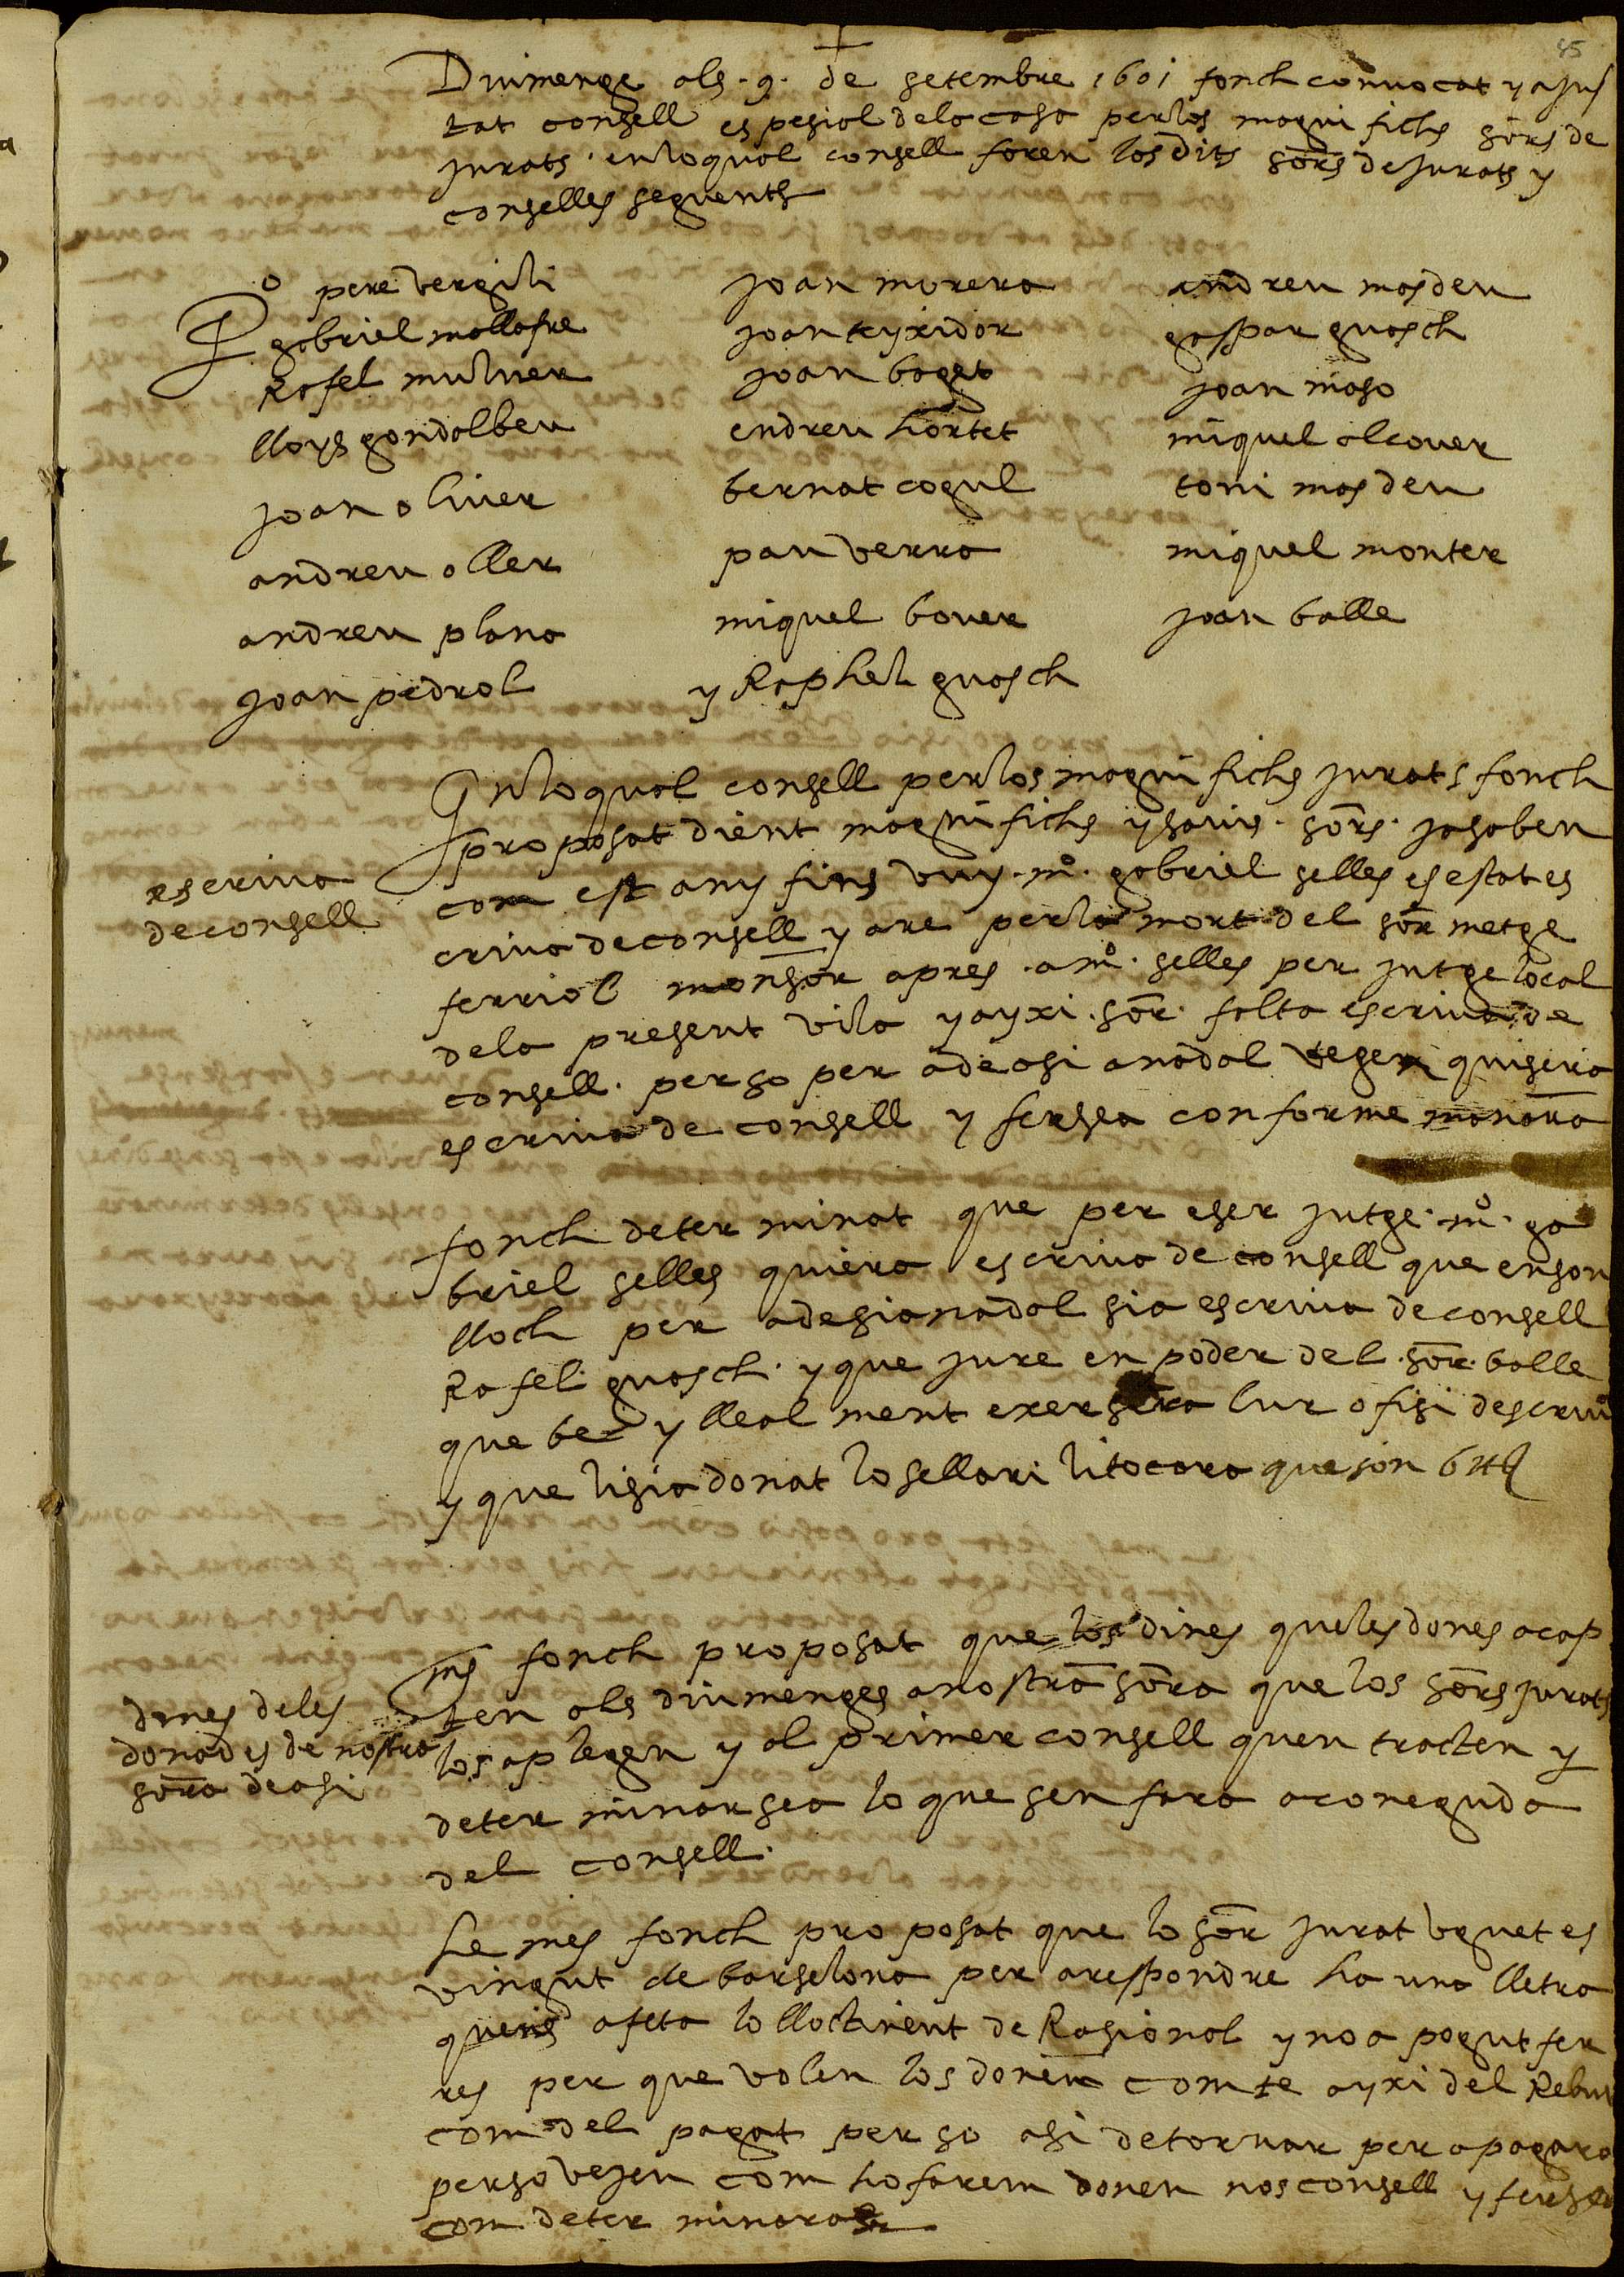 45
Diumenge als .9. de setembre 1601 fonch convocat y ajus
tat consell espesial dela casa perlos magnifichs sors de
jurats. enloqual consell foren los dits sors de jurats y
consellés seguents
o pere vergili
gabriel mallafre
Rafel mulner
lloys gondolbeu
joan oliver
andreu oller
andreu plana
joan pedrol
joan morera
joan teyxidor
joan baget
endreu hortet
bernat cogul
pau verra
miquel bover
y Raphel guasch
andreu masdeu
gaspar guasch
joan maso
miquel alcover
toni masdeu
miquel monter
joan balle
Enloqual consell perlos magnifichs jurats fonch
proposat dient magnifichs ysavis. sors. jasaben
escriva
deconsell
com est any fins vuy. mº. gabriel selles es estat es
criva deconsell y are perla mort del sor metge
ferriol monsor apres .a mº. selles per jutge local
dela present vila yayxi .sor. falta escriva de
consell. perso per adeasi anadal vegen quisera
escriva de consell y fersea conforme manara
fonch determinat que per eser jutge .mº. ga
briel selles quiera escriva de consell que enson
lloch per adesianadal sia escriva deconsell
Rafel guasch. yque jure en poder del .sor. balle
que be y lleal ment exersira lur ofisi descriva
y que lisia donat lo sellari litocara queson 6 ℔
mes fonch proposat que los dines queles dones acap
dines deles
donades de nostra
sora deasi
ten als diumenges anostra sora que los sors jurats
los aplegen y al primer consell quen tracten y
determinarsea lo que sen fara aconeguda
del consell.
he mes fonch proposat que lo sor jurat uguet es
vingut de barselona per arespondre ha una lletra
quens afeta lo lloctinent de Rasional y noa pogut fer
res per que volen los donem comte ayxi del Rebut
com del pagat per so asi detornar per apagara
perso vejen com hofarem donen nos consell y fersea
com determinaran